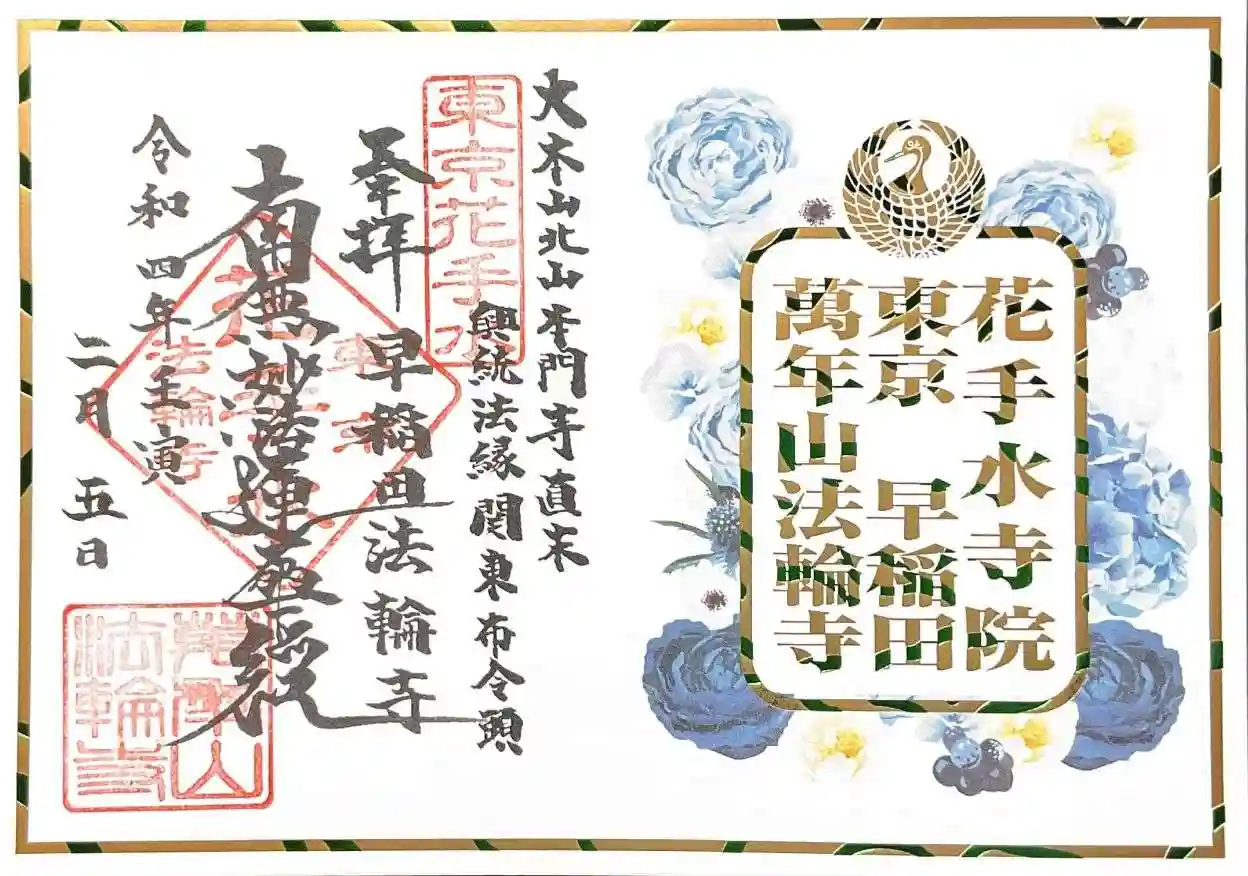 花手水寺院
東京 早稲田
萬年山法輪寺
大本山北山本門寺直末
興統法縁関東布令頭
東京花手水
奉拝 早稲田法輪寺
南無妙法蓮華経
令和四年壬寅
二月五日
法輪寺
萬年山
法輪寺